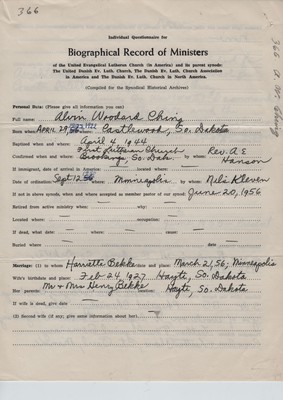 366
366 A. W. Ching
Individual Questionnaire for
Biographical Record of Ministers
of the United Evangelical Lutheran Church (in America) and its parent synods:
The United Danish Ev. Luth. Church, The Danish Ev. Luth. Church Association
in America and The Danish Ev. Luth. Church in North America.
(Compiled for the Synodical Historical Archives)
Personal Data: (Please give all information you can)
Full name: Alvin Woodard Ching
Born when: APRIL 29, 1922 where: Castlewood, So. Dakota
Baptized when and where: April 4, 1944
Confirmed when and where: First Lutheran Church Brookings, So. Dak. by whom: Rev. A E Hanson
If immigrant, date of arrival in America: — located where:
Date of ordination: Sept. 12, 56 where: Minneapolis by whom: Neli Kleven
If not in above synods, when and where accepted as member pastor of our synod: June 20, 1956
Retired from active ministry when: — why:
Located where: — occupation: —
If dead, what date: — where: — cause: —
Buried where — date —
Marriage: (1) to whom Harriette Bekke date and place: March 21, 56; Minneapolis
Wife's birthdate and place: Feb 24, 1927 Hayti, So. Dakota
Her parents: Mr & Mrs Henry Bekke location: Hayti, So. Dakota
If wife is dead, give date —
(2) Second wife (if any; give same information about her). —